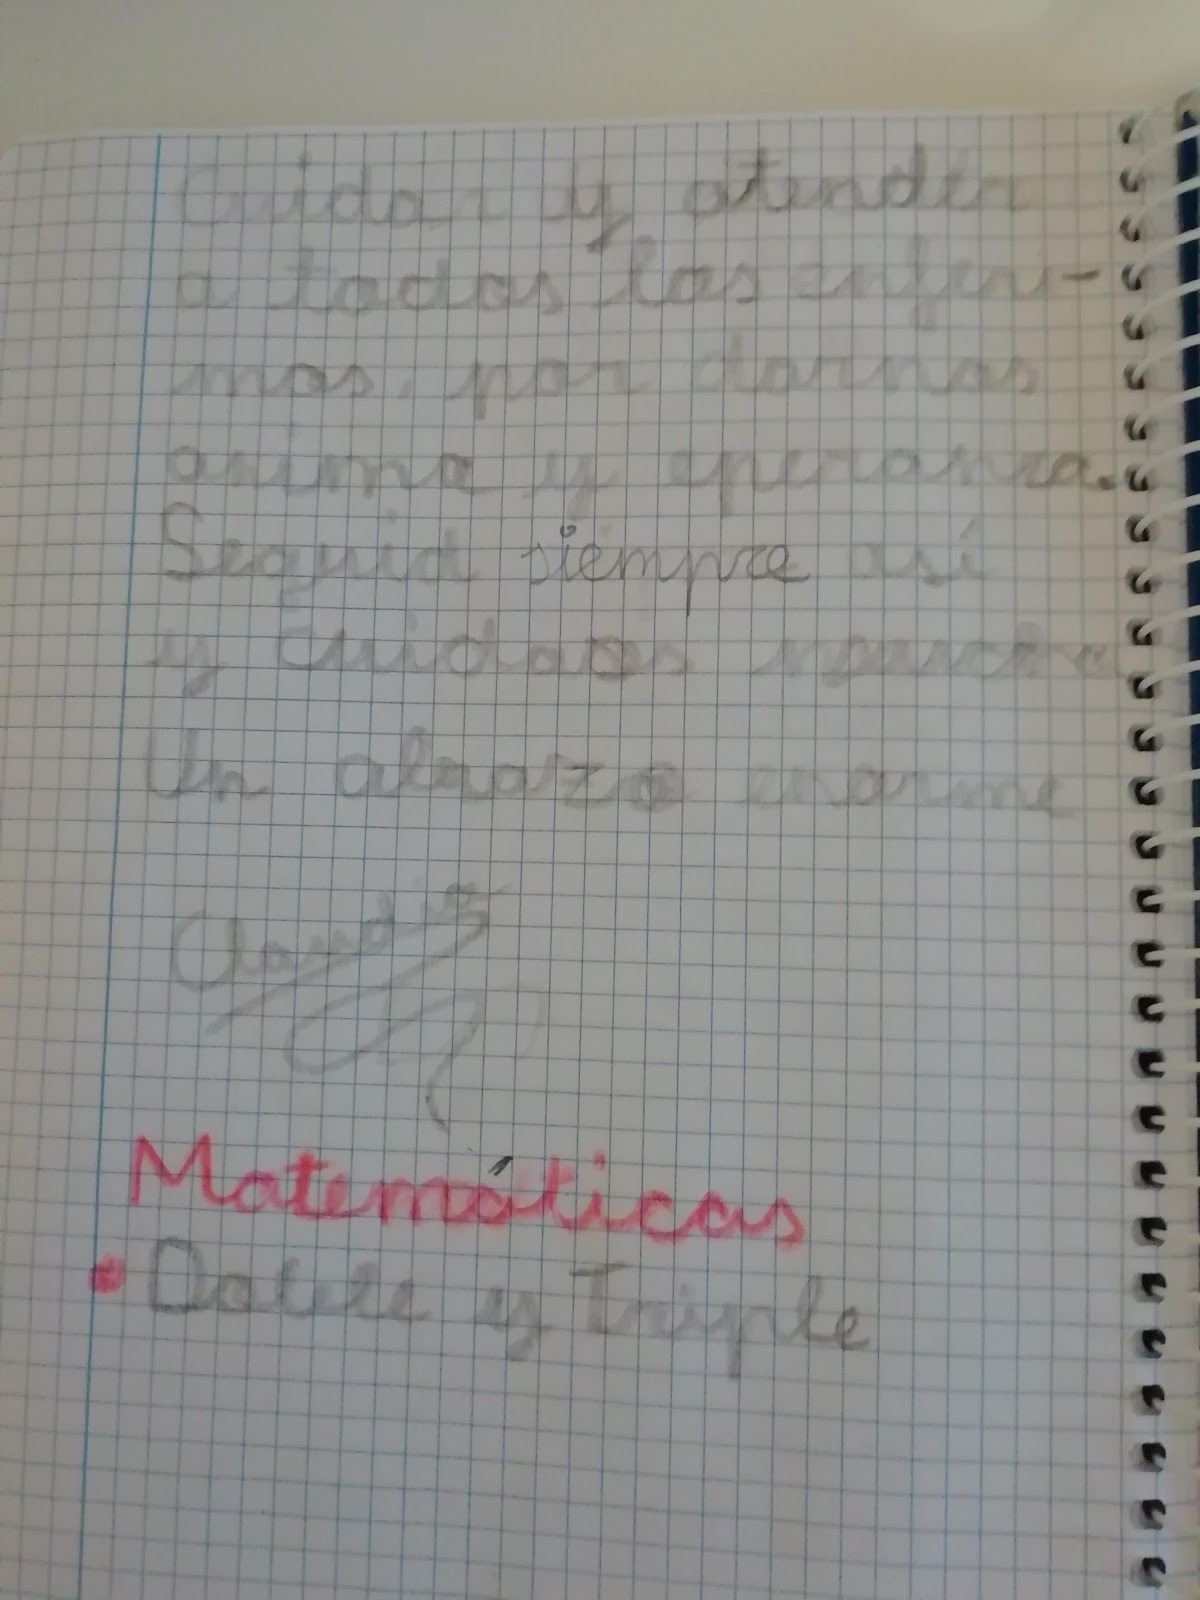 Cuidar y atender
a todos los enfer-
mos, por darnos
animo y eperanza.
Seguid siempre así
y cuidaos mucho
Un abrazo enorme
Claudia
Matemáticas
• Doble y Triple